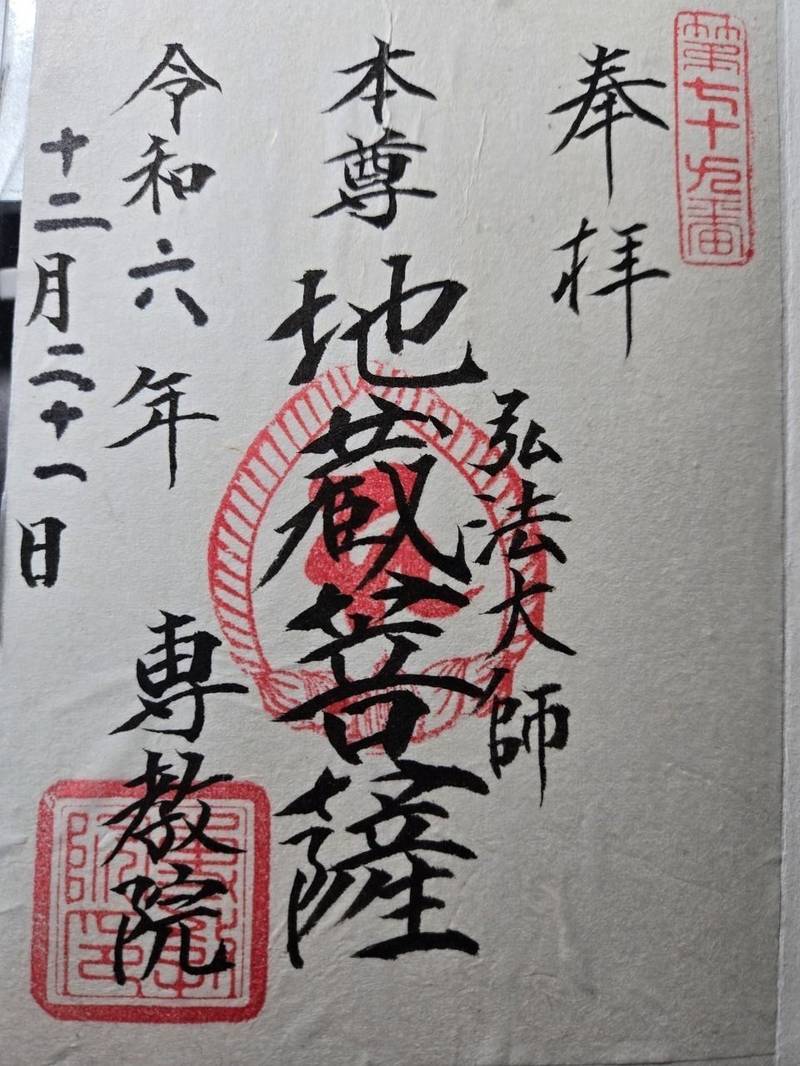 第七十九番
奉拝
弘法大師
本尊 地蔵菩薩
令和六年
十二月二十一日
専教院